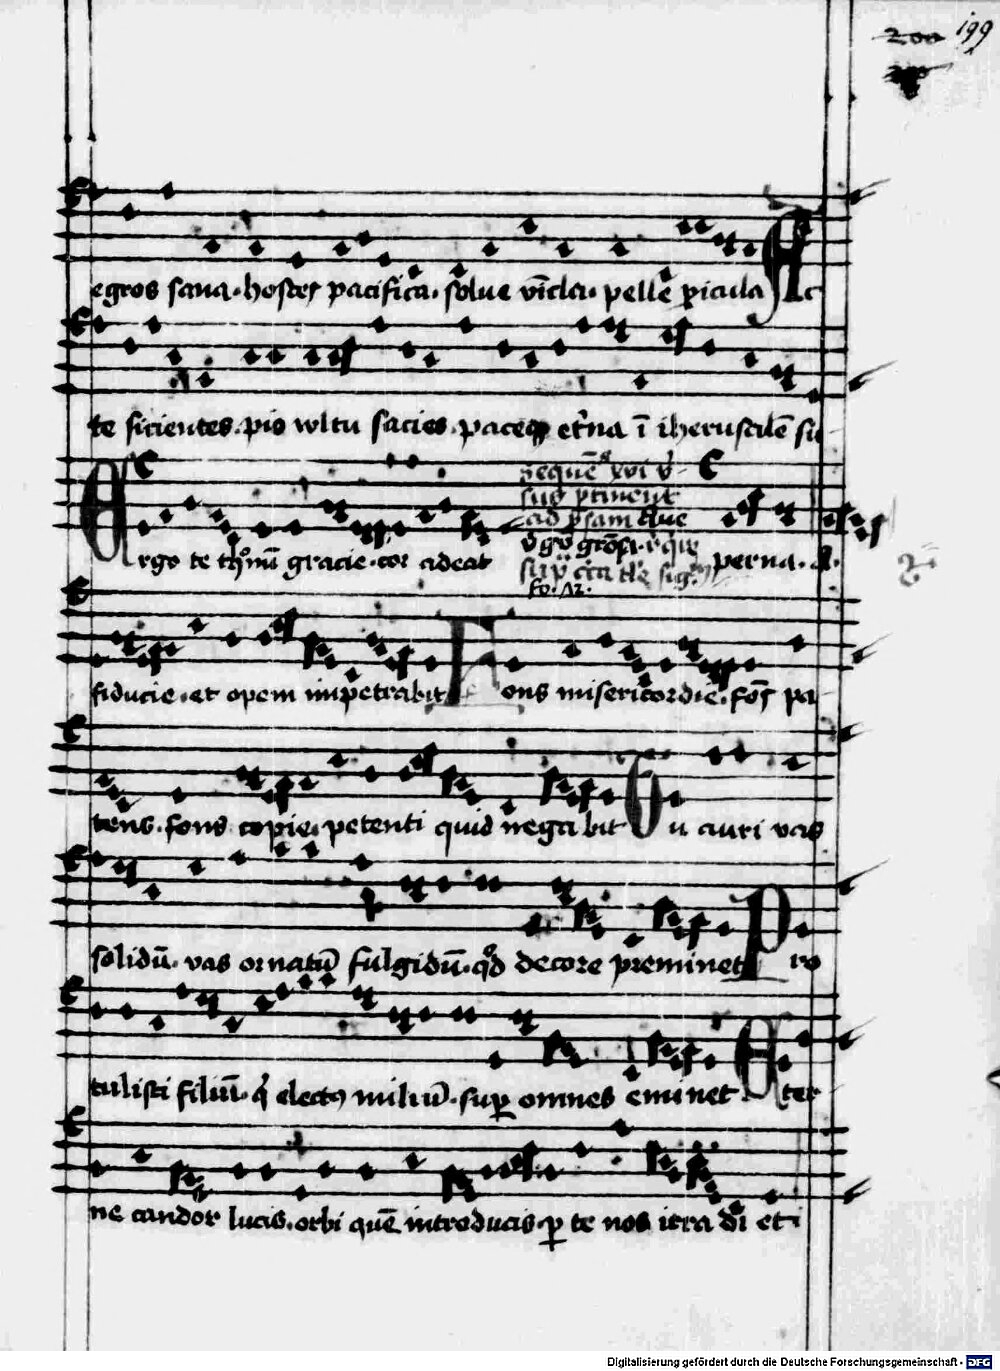 199
egros sana. hostes pacifica. solue vīcla. pelle picula Ac
te sicientes. pio wltu sacies. paceqꝫ et'na ī iherusalē su
Ergo te thronū gracie. cor adeat perna. A.
fiducie. et opem impetrabit Fons misericordie. fons pa
tens. fons copie. petenti quid negabit Tu auri vas
solidū. vas ornatū fulgidū. qd decore preminet Pro
tulisti filiū. q electꝰ miliū. suꝑ omnes eminet. Eter
ne candor lucis. orbi quē introducis. ꝑ te nos itra
Digitalisierung gefördert durch die Deutsche Forschungsgemeinschaft - DFG